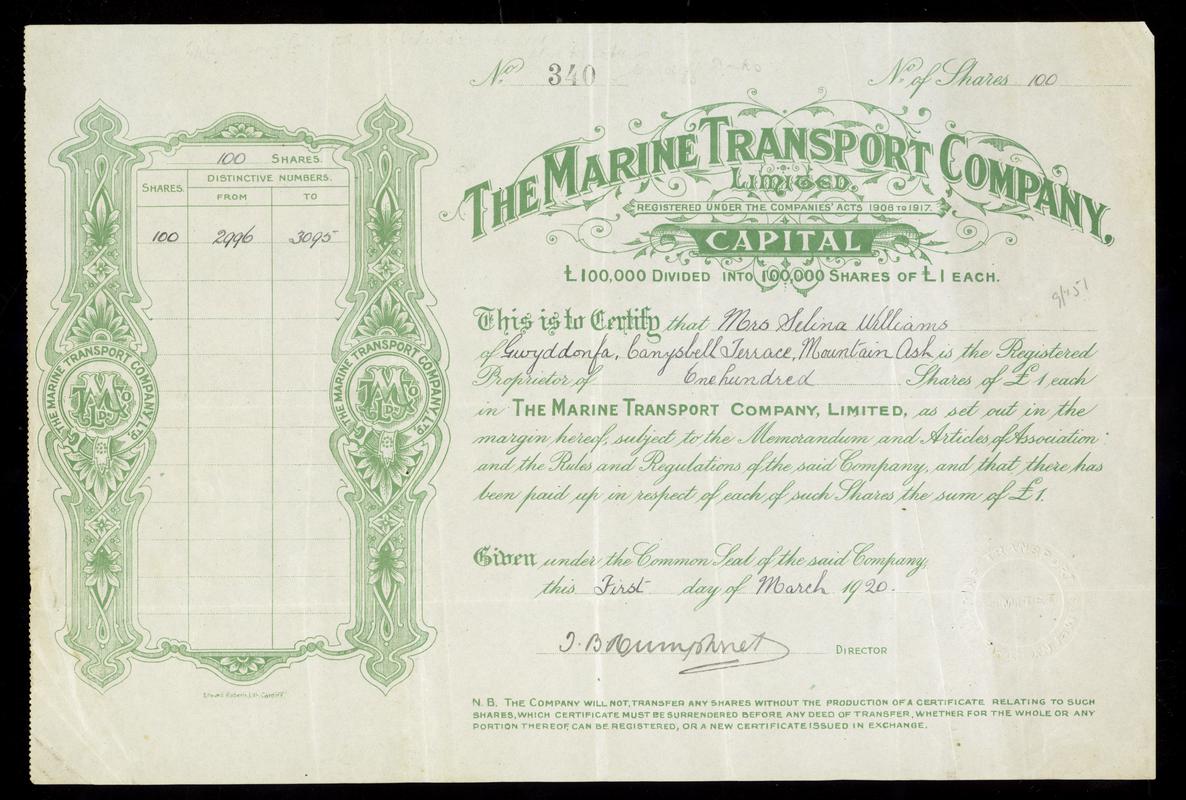 No 340
No of Shares 100
THE MARINE TRANSPORT COMPANY,
LIMITED.
REGISTERED UNDER THE COMPANIES' ACTS 1908 TO 1917.
CAPITAL
£100,000 DIVIDED INTO 100,000 SHARES OF £1 EACH.
100 SHARES.
SHARES. DISTINCTIVE NUMBERS.
FROM TO
100 2996 3095
THE MARINE TRANSPORT COMPANY, LTD
M T Co LD.
THE MARINE TRANSPORT COMPANY, LTD
M T Co LD.
This is to Certify that Mrs Selina Williams
of Gwyddonfa, Canysbell Terrace, Mountain Ash is the Registered
Proprietor of One hundred Shares of £1 each
in THE MARINE TRANSPORT COMPANY, LIMITED, as set out in the
margin hereof, subject to the Memorandum and Articles of Association
and the Rules and Regulations of the said Company, and that there has
been paid up in respect of each of such Shares the sum of £1.
Given under the Common Seal of the said Company,
this First day of March 1920.
DIRECTOR
N.B. THE COMPANY WILL NOT TRANSFER ANY SHARES WITHOUT THE PRODUCTION OF A CERTIFICATE RELATING TO SUCH
SHARES, WHICH CERTIFICATE MUST BE SURRENDERED BEFORE ANY DEED OF TRANSFER, WHETHER FOR THE WHOLE OR ANY
PORTION THEREOF, CAN BE REGISTERED, OR A NEW CERTIFICATE ISSUED IN EXCHANGE.
Roberts, Lith, Cardiff